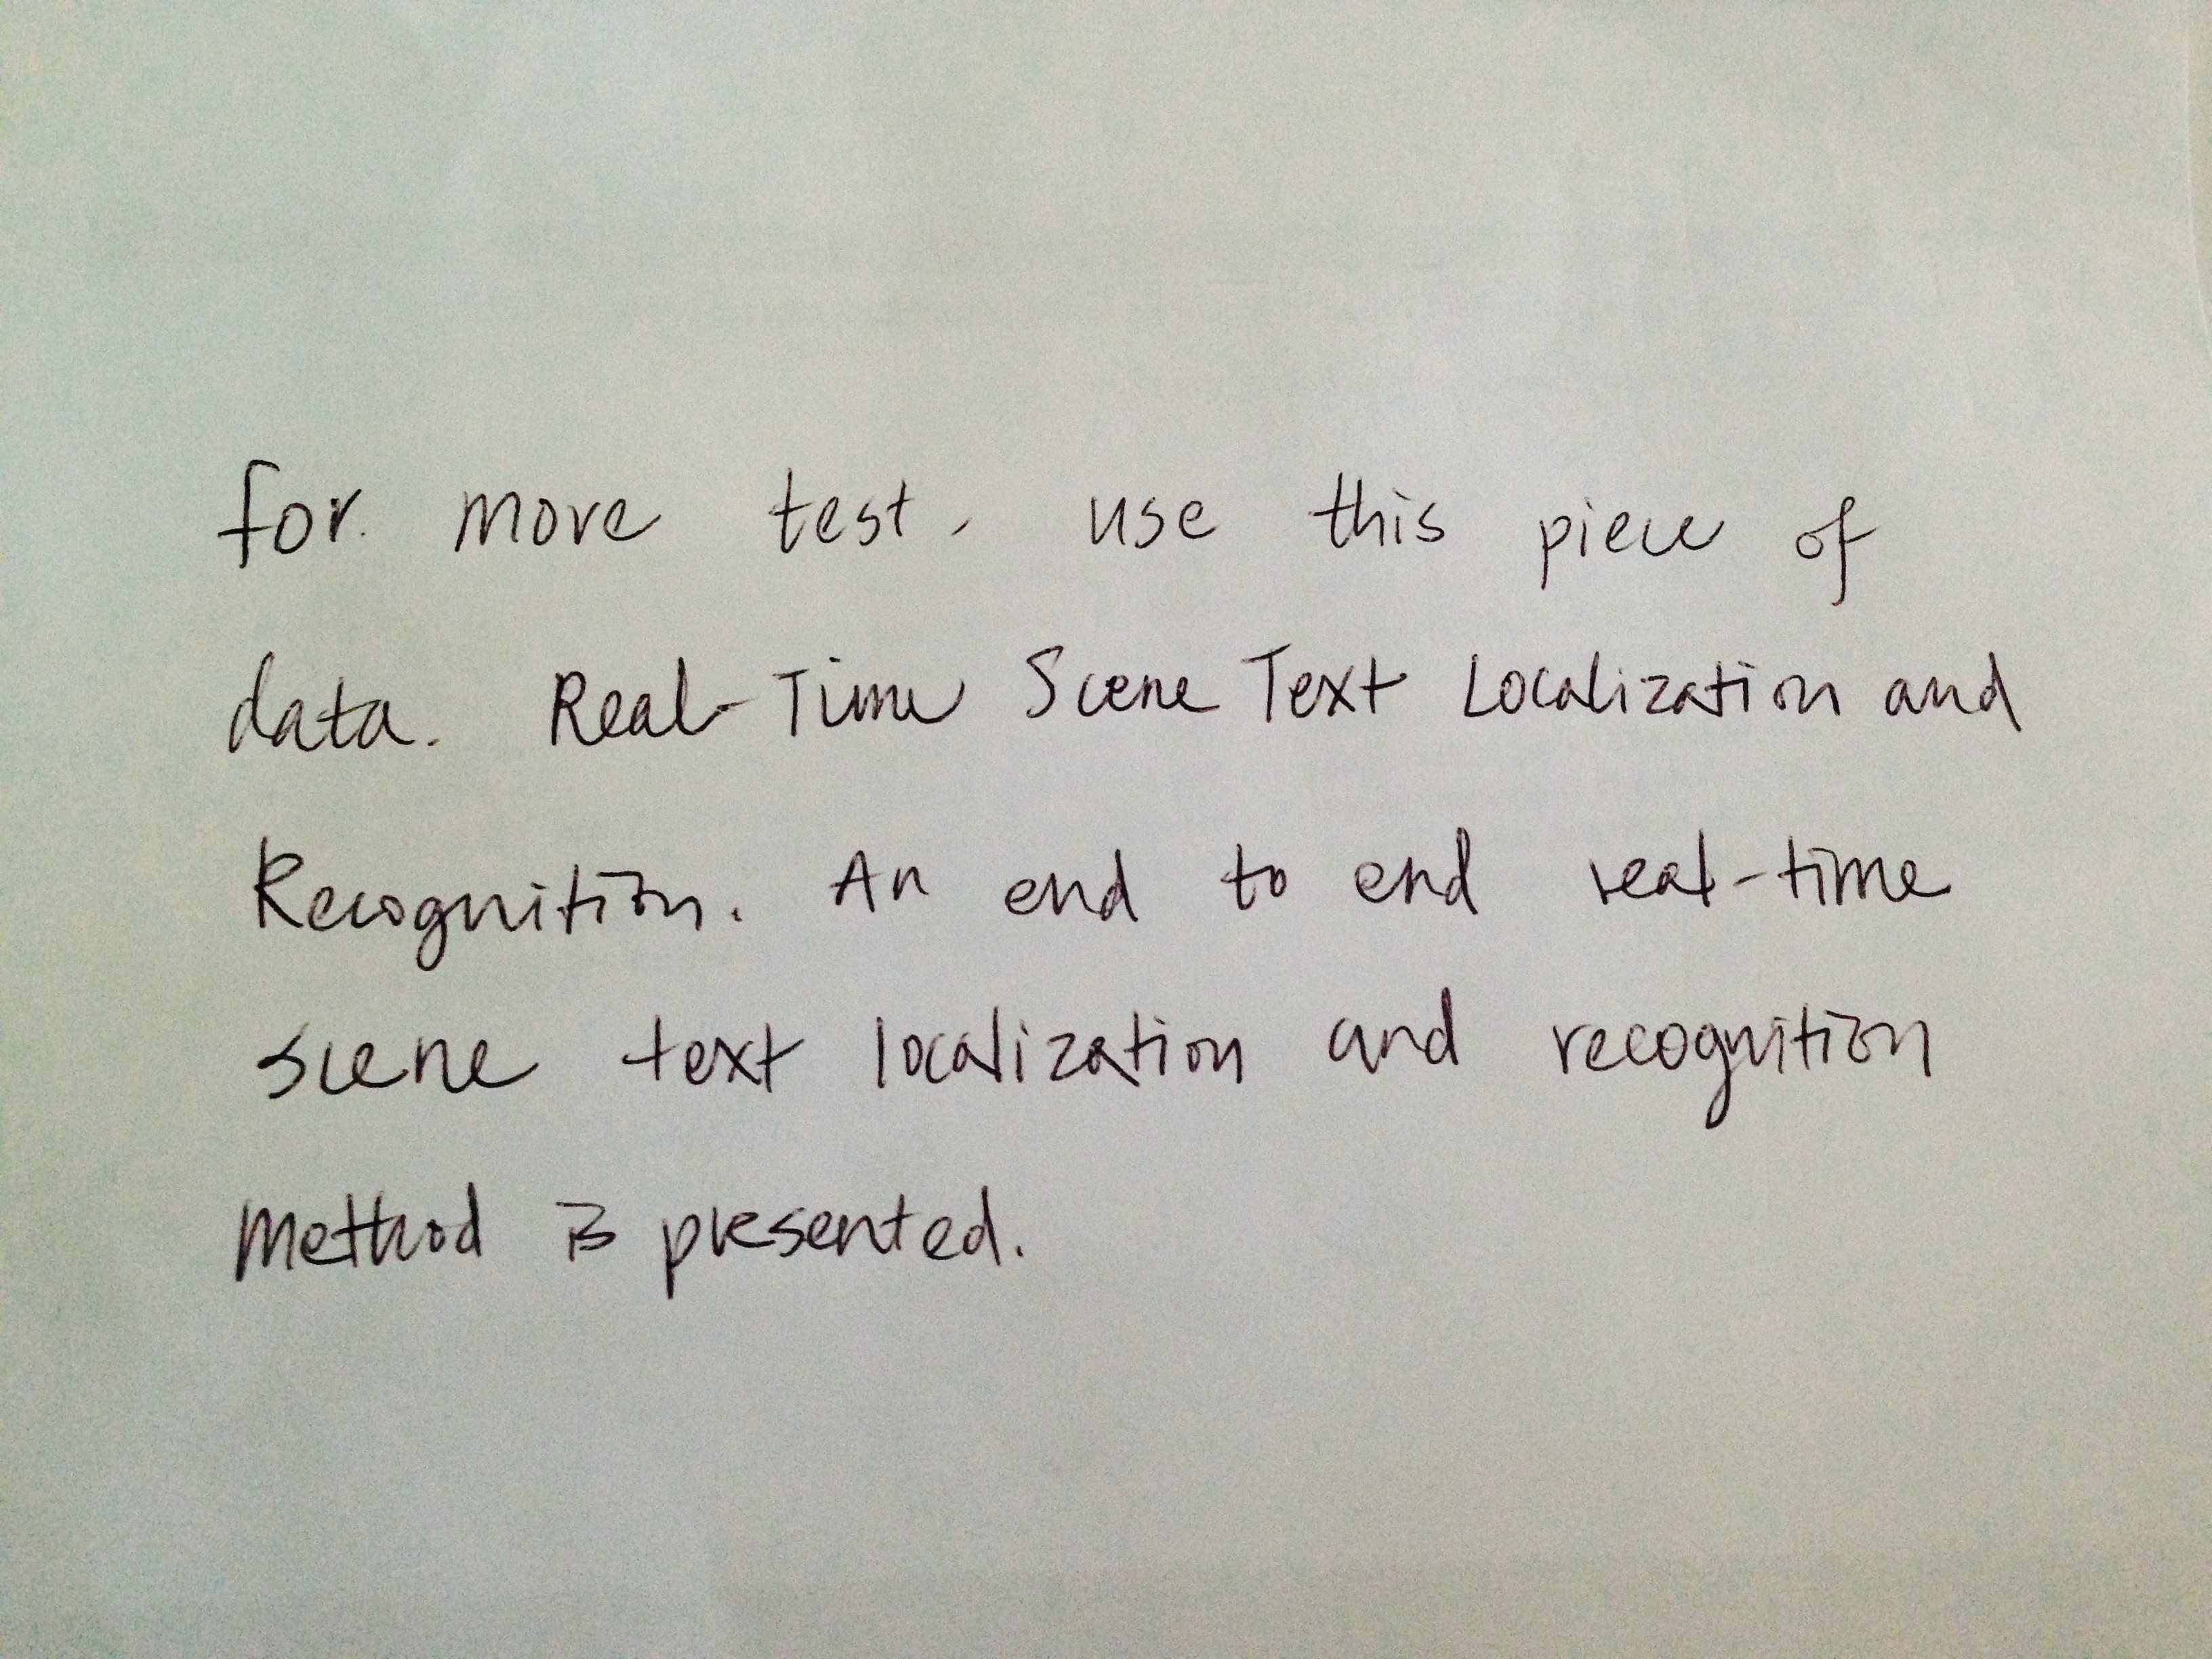 for more test, use this piece of
data. Real-Time Scene Text Localization and
Recognition. An end to end real-time
scene text localization and recognition
method is presented.